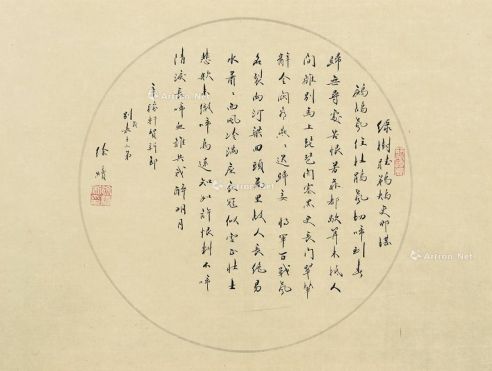 綠樹聽鵜鴂更那堪
鷓鴣聲住杜鵑聲切啼到春
歸無尋處苦恨芳菲都歇算未抵人
間離別馬上琵琶關塞黑更長門翠輦
辭金闕看燕燕送歸妾 將軍百戰聲
名裂向河梁回頭萬里故人長絕易
水蕭蕭西風冷滿座衣冠似雪正壯士
悲歌未徹啼鳥還知如許恨料不啼
清淚長啼血誰共我醉明月
辛稼軒賀新郎
別茂嘉十二弟
徐
Artron.Net
Artron.Net
Artron.Net
Artron.Net